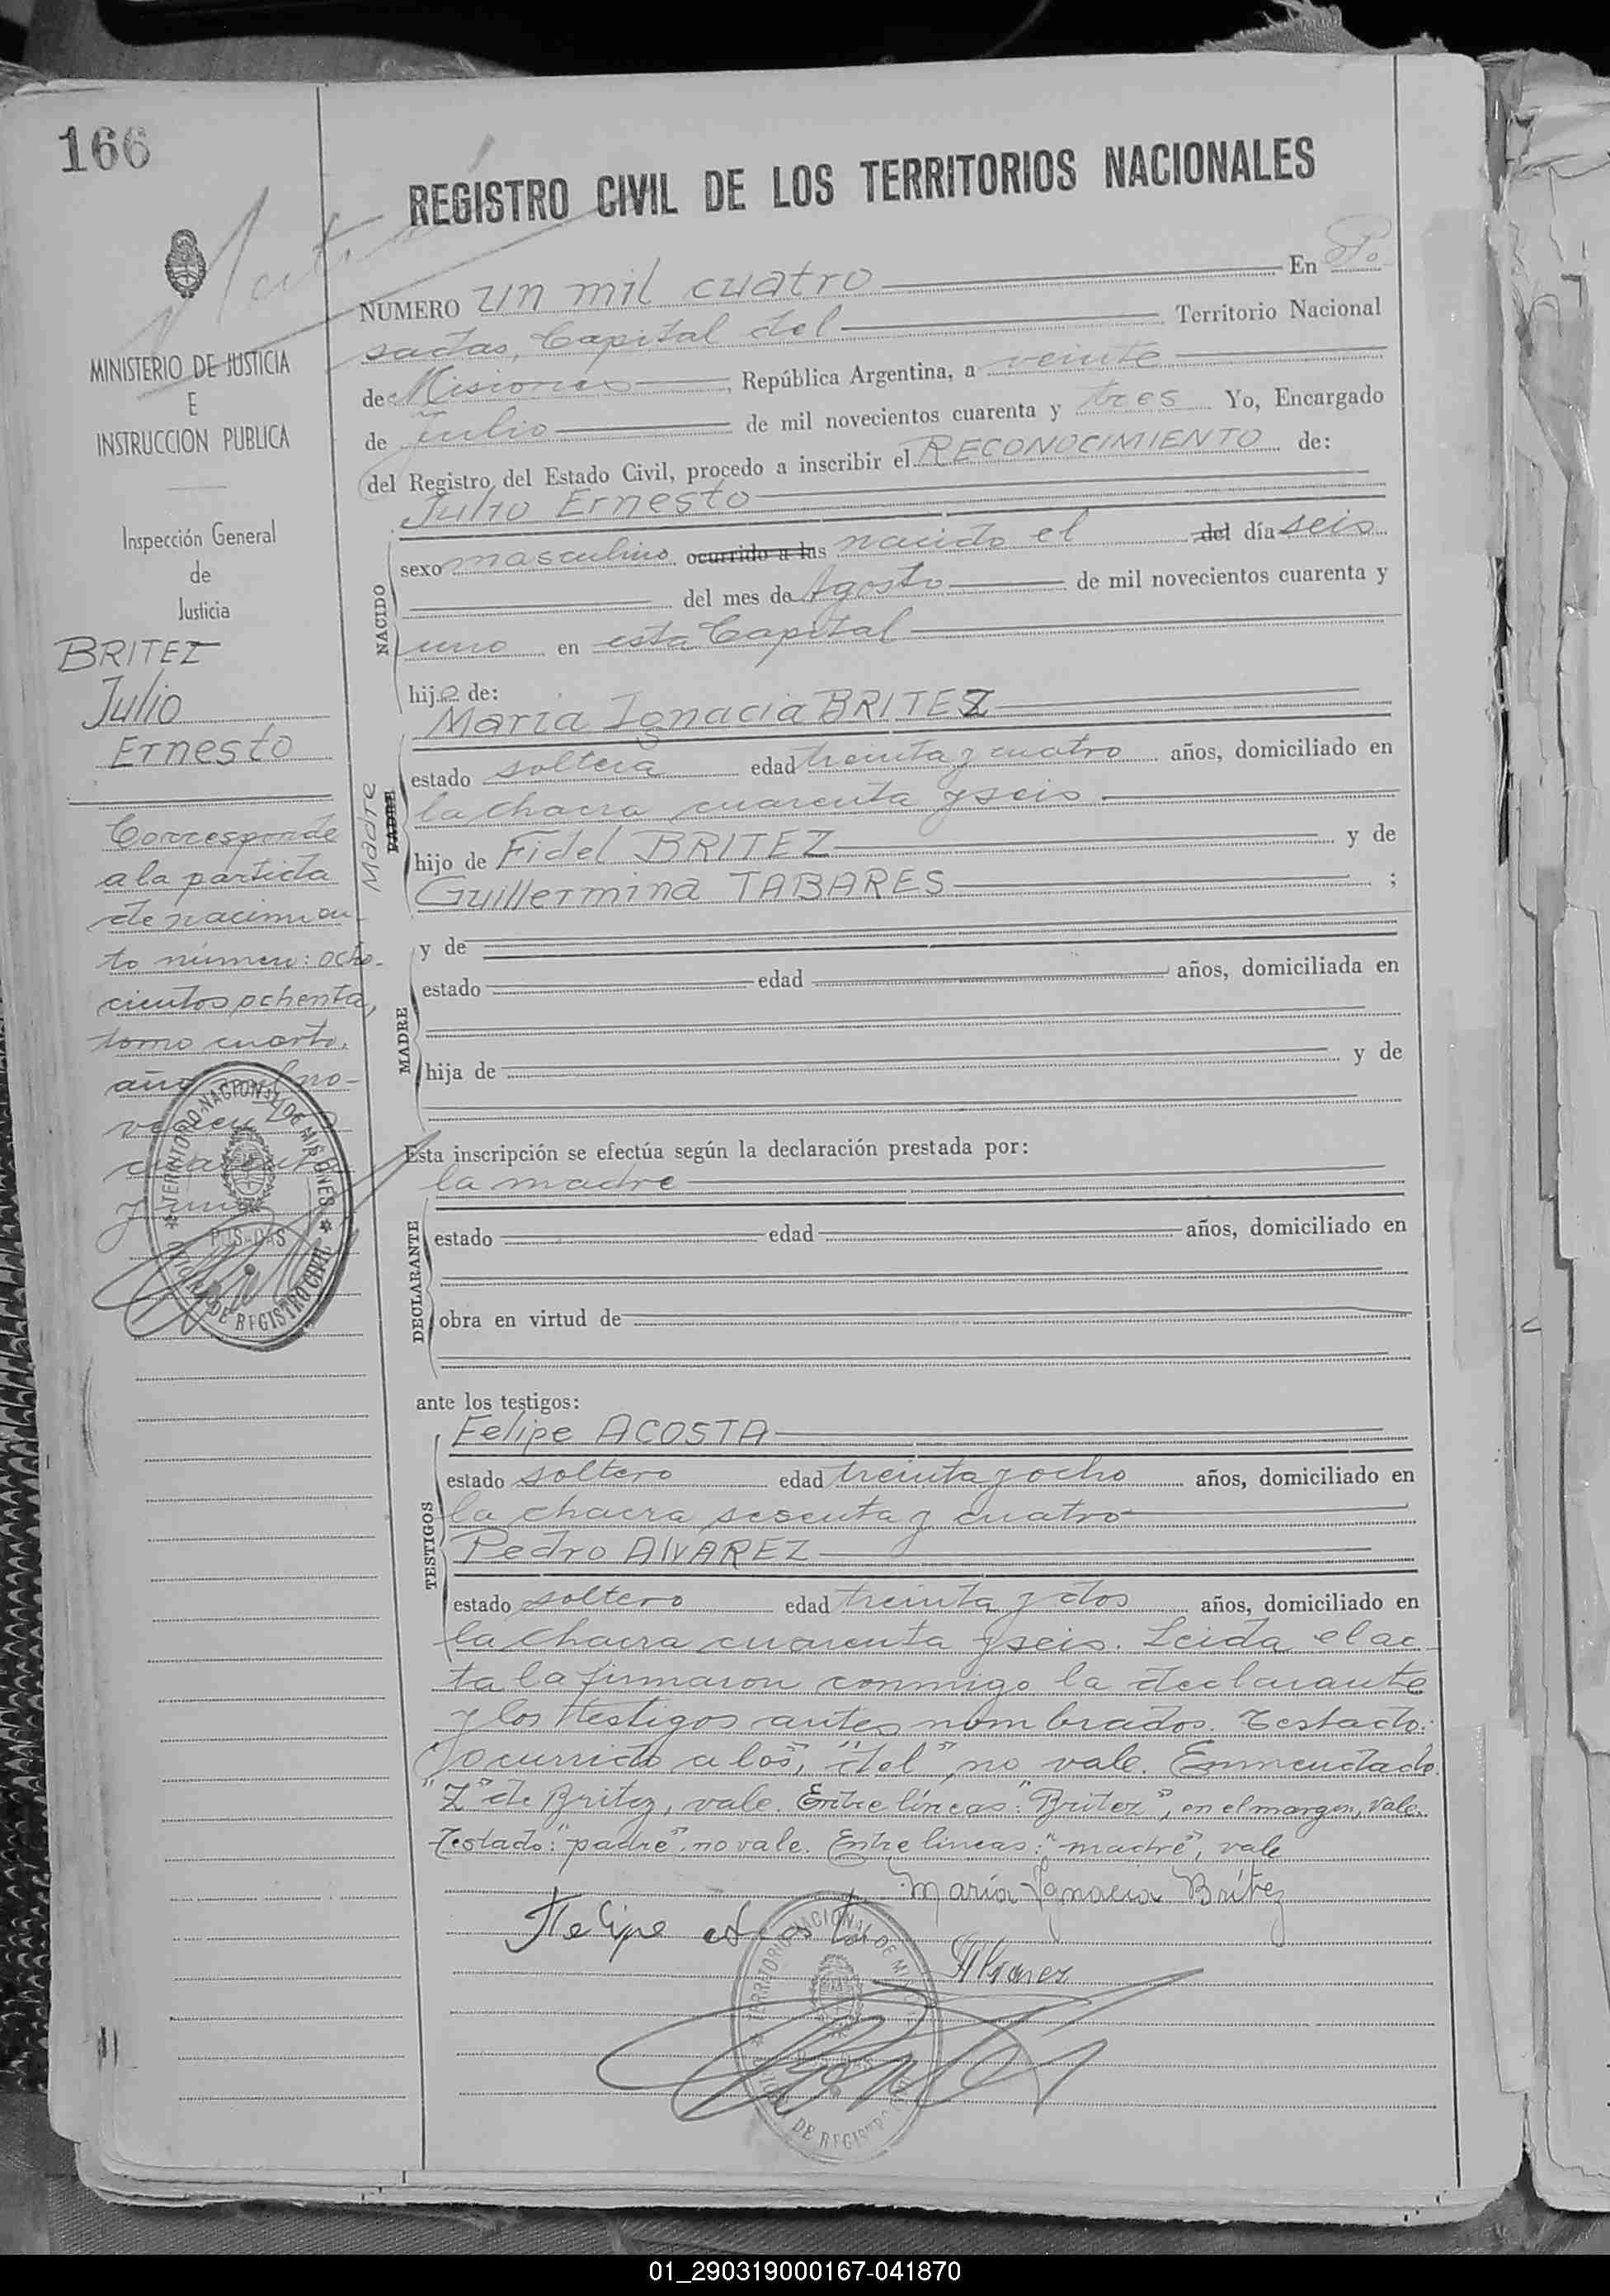 166
REGISTRO CIVIL DE LOS TERRITORIOS NACIONALES
NUMERO un mil cuatro En Po
sadas, Capital del Territorio Nacional
de Misiones, República Argentina, a veinte
de Julio de mil novecientos cuarenta y tres Yo, Encargado
del Registro del Estado Civil, procedo a inscribir el RECONOCIMIENTO de:
Julio Ernesto
NACIDO
sexo masculino ocurrido a las nacido el del día seis
del mes de Agosto de mil novecientos cuarenta y
uno en esta Capital
hijo de:
María Ignacia BRITEZ
Madre
PADRE
estado soltera edad treinta y cuatro años, domiciliado en
la chacra cuarenta y seis
hijo de Fidel BRITEZ y de
Guillermina TABARES ;
y de
MADRE
estado edad años, domiciliada en
hija de y de
Esta inscripción se efectúa según la declaración prestada por:
la madre
DECLARANTE
estado edad años, domiciliado en
obra en virtud de
ante los testigos:
Felipe ACOSTA
TESTIGOS
estado soltero edad treinta y ocho años, domiciliado en
la chacra sesenta y cuatro
Pedro AlVAREZ
estado soltero edad treinta y dos años, domiciliado en
la chacra cuarenta y seis. Leida el ac
ta la firmaron conmigo la declarante
y los testigos antes nombrados. Testado:
"ocurrido a los", "del", no vale. Enmendado
"Z" de Britez, vale. Entre líneas: "Britez", en el margen, vale.
Testado: "padre", no vale. Entre lineas: "madre", vale
María Ignacia Britez
Felipe Acosta
Alvarez
TERRITORIO NACIONAL DE MISIONES
POSADAS
OFICINA DE REGISTRO CIVIL
MINISTERIO DE JUSTICIA
E
INSTRUCCION PUBLICA
Inspección General
de
Justicia
BRITEZ
Julio
Ernesto
Corresponde
a la partida
de nacimien-
to número: ocho-
cientos ochenta,
tomo cuarto,
año mil no-
vecientos
cuarenta
y uno
TERRITORIO NACIONAL DE MISIONES
POSADAS
OFICINA DE REGISTRO CIVIL
01_290319000167-041870